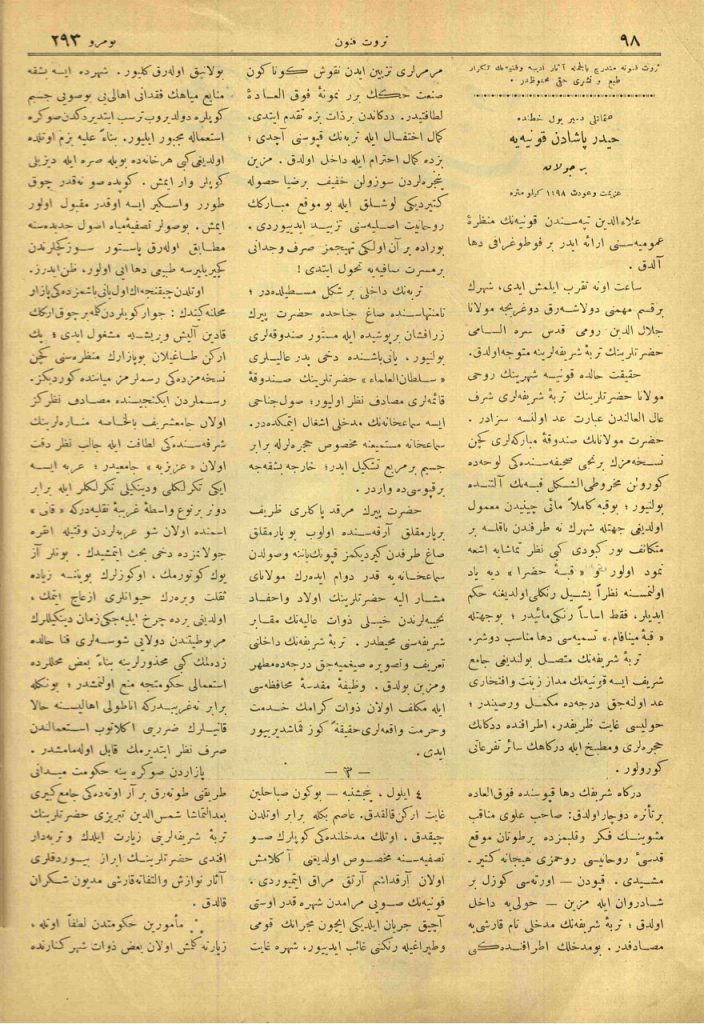 ٩٨
ثروت فنون
نومرو ٢٩٣
ثروت فنونه مندرج بالجمله آثار ادبیه و فنیه‌نك تكرار
طبع و نشری حقی محفوظدر .
عثمانلی دمیر یول خطنده
حیدر پاشادن قونیه‌یه
بر جولان
عزیمت وعودت ١١٩٨ كیلو متره
علاء الدین تپه سندن قونیه‌نك منظرهٔ
عمومیه‌سنی ارائه ایدر بر فوطوغرافی دها
آلدق .
ساعت اونه تقرب ایلمش ایدی، شهرك
برقسم مهمنی دولاشه‌رق دوغریجه مولانا
جلال الدین رومی قدس سره السامی
حضرتلرینك تربهٔ شریفه‌لرینه متوجه اولدق.
حقیقت حالده قونیه شهرینك روحی
مولانا حضرتلرینك تربهٔ شریفه‌لری شرف
عالی العالندن عبارت عد اولنسه سزادر .
حضرت مولانانك صندوقهٔ مباركه‌لری كچن
نسخه‌مزك برنجی صحیفه‌سنده‌كی لوحه‌ده
كورولن مخروطی الشكل قبه‌نك آلتنده
بولنیور ؛ بوقبه كاملاً مائی چینیدن معمول
اولدیغی جهتله شهرك نه طرفندن باقلسه بر
متكاثف نور كبودی كبی نظر تماشایه اشعه
نمود اولور « قبهٔ خضرا » دیه یاد
اولنمسنه نظراً یشیل رنكلی اولدیغنه حكم
ایدیلر، فقط اساساً رنكی مائیدر ؛ بوجهتله
« قبهٔ مینافام » تسمیه‌سی دها مناسب دوشر.
تربهٔ شریفه‌نك متصل بولندیغی جامع
شریف ایسه قونیه‌نك مدار زینت وافتخاری
عد اولنه‌جق درجه‌ده مكمل ورصیندر ؛
حولیسی غایت ظریفدر، اطرافنده ددكانك
حجره‌لری ومطبخ ایله دركاهك سائر تفرعاتی
كورولور .
دركاه شریفك دها قپوسنده فوق العاده
برتأثره دوچار اولدق : صاحب علوی مناقب
مثنوینك فكر وقلبمزده برطوتان موقع
قدسیٔ روحانیسی روحمزی هیجانه كتیر ـ
مشیدی . قپودن — اورته‌سی كوزل بر
شادروان ایله مزین — حولی‌یه داخل
اولدق ؛ تربهٔ شریفه‌نك مدخلی تام قارشی‌یه
مصادفدر . بومدخلك اطرافنده‌كی
مرمرلری تزیین ایدن نقوش كوناكون
صنعت حكك برر نمونهٔ فوق العادهٔ
لطافتیدر . ددكاندن برذات بزه تقدم ایتدی.
كمال احتفال ایله تربه‌نك قپوسنی آچدی ؛
بزده كمال احترام ایله داخل اولدق . مزین
پنجره‌لردن سوزولن خفیف برضیا حصوله
كتیردیكی لوشلق ایله بوموقع مباركك
روحانیت اصلیه‌سنی تزیید ایدییوردی .
بوراده بر آن اولكی تهیجمز صرف وجدانی
برمسرت صافیه‌یه تحول ایتدی !
تربه‌نك داخلی بر شكل مستطیلده‌در ؛
نامنتهاسنده صاغ جناحده حضرت پیرك
زرافشان بر پوشیده ایله مستور صندوقه‌لری
بولنیور . یانی‌باشنده دخی پدر عالیلری
« سلطان العلماء » حضرتلرینك صندوقهٔ
قائمه‌لری مصادف نظر اولیور؛ صول جناحی
ایسه سماعخانه‌نك مدخلی اشغال ایتمكده‌در.
سماعخانه مستمعینه مخصوص حجره‌لرله برابر
جسیم بر مربع تشكیل ایدر؛ خارجه بشقه‌جه
برقپوسی ده واردر .
حضرت پیرك مرقد پاكاری ظریف
برپارمقلق آرقه‌سنده اولوب بو پارمقلق
صاغ طرفدن كیردیكمز قپونك یاننه وصولدن
سماعخانه‌یه قدر دوام ایده‌رك مولانای
مشار الیه حضرتلرینك اولاد واحفاد
نجیبه‌لرندن خیلی ذوات عالیه‌نك مقابر
شریفه‌سنی محیطدر . تربهٔ شریفه‌نك داخلنی
تعریف وتصویره صیغمیه‌جق درجه‌ده مطهر
ومزین بولدق . وظیفهٔ مقدسهٔ محافظه‌سی
ایله مكلف اولان ذوات كرامك خدمت
وحرمت واقعه‌لری حقیقةً كوز قماشدیرییور
ایدی .
— ٣ —
٤ ایلول ، پنجشنبه — بوكون صباحلین
غایت اركن قالقدق. عاصم بكله برابر اوتلدن
چیقدق . اوتلك مدخلنده‌كی كوپلرك صو
تصفیه‌سنه مخصوص اولدیغنی آكلامش
اولان آرقداشم آرتق مراق ایتمیوردی .
قونیه‌نك صویی مرامدن شهره قدر اوستی
آچیق جریان ایلدیكی ایچون مجرانك قومی
وطپراغیله رنكنی غائب ایدییور، شهره غایت
بولانیق اوله‌رق كلیور . شهرده ایسه بشقه
منابع میاهك فقدانی اهالی‌یی بوصویی جسیم
كوپلره دولدیروب ترسب ایتدیردكدن صوكره
استعماله مجبور ایلیور. بناءً علیه بزم اوتلده
اولدیغی كبی هر خانه‌ده بویله صره ایله دیزیلی
كوپلر وار ایمش . كوپده صو نه‌قدر چوق
طورر واسكیر ایسه اوقدر مقبول اولور
ایمش . بوصولر تصفیهٔ میاه اصول جدیده‌سنه
مطابق اوله‌رق پاستور سوزكجلرندن
كچیریلیرسه طبیعی دها ایی اولور، ظن ایدرز.
اوتلدن چیقنجه‌اك اول یانی‌باشمزده‌كی پازار
محلنه كیتدك: جوار كویلردن كلمه برچوق اركك
قادین آلیش ویریشله مشغول ایدی ؛ پك
اركن طاغیلان بوپازارك منظره‌سنی كچن
نسخه‌مزده‌كی رسملرمز میاننده كوردیكز.
رسملردن ایكنجیسنده مصادف نظركز
اولان جامعشریف بالخاصه مناره‌لرینك
شرفه‌سنده‌كی لطافت ایله جالب نظر دقت
اولان « عزیزیه » جامعیدر ؛ عربه ایسه
ایكی تكرلكلی ودینكیلی تكرلكلر ایله برابر
دونر برنوع واسطهٔ غریبهٔ نقلیه‌دركه « قانی »
اسمنده اولان شو عربه‌لردن وقتیله انقره
جولانمزده دخی بحث ایتمشیدك . بونلر آز
یوك كوتورمك ، اوكوزلرك بویننه زیاده
ثقلت ویره‌رك حیوانلری ازعاج ایتمك ،
اولدیغی یرده چرخ ایلیه‌جكی زمان دینكیللرك
مربوطیتندن دولایی شوسه‌لری فنا حالده
زده‌لمك كبی محذورلرینه بناءً بعض محللرده
استعمالی حكومتجه منع اولنمشدر ؛ بونكله
برابر نه‌غریبدركه اناطولی اهالیسنه حالا
قانیلرك ضررینی اكلاتوب استعمالندن
صرف نظر ایتدیرمك قابل اوله‌مامشدر .
پازاردن صوكره ینه حكومت میدانی
طریقنی طوته‌رق بر آز اوته‌ده‌كی جامع كبیری
بعدالتماشا شمس الدین تبریزی حضرتلرینك
تربهٔ شریفه‌لرینی زیارت ایلدك وتربه‌دار
افندی حضرتلرینك ابراز بیوردقلری
آثار نوازش والتفاته قارشی مدیون شكران
قالدق .
مأمورین حكومتدن لطفاً اوتله ،
زیارته كلمش اولان بعض ذوات شهر كنارنده